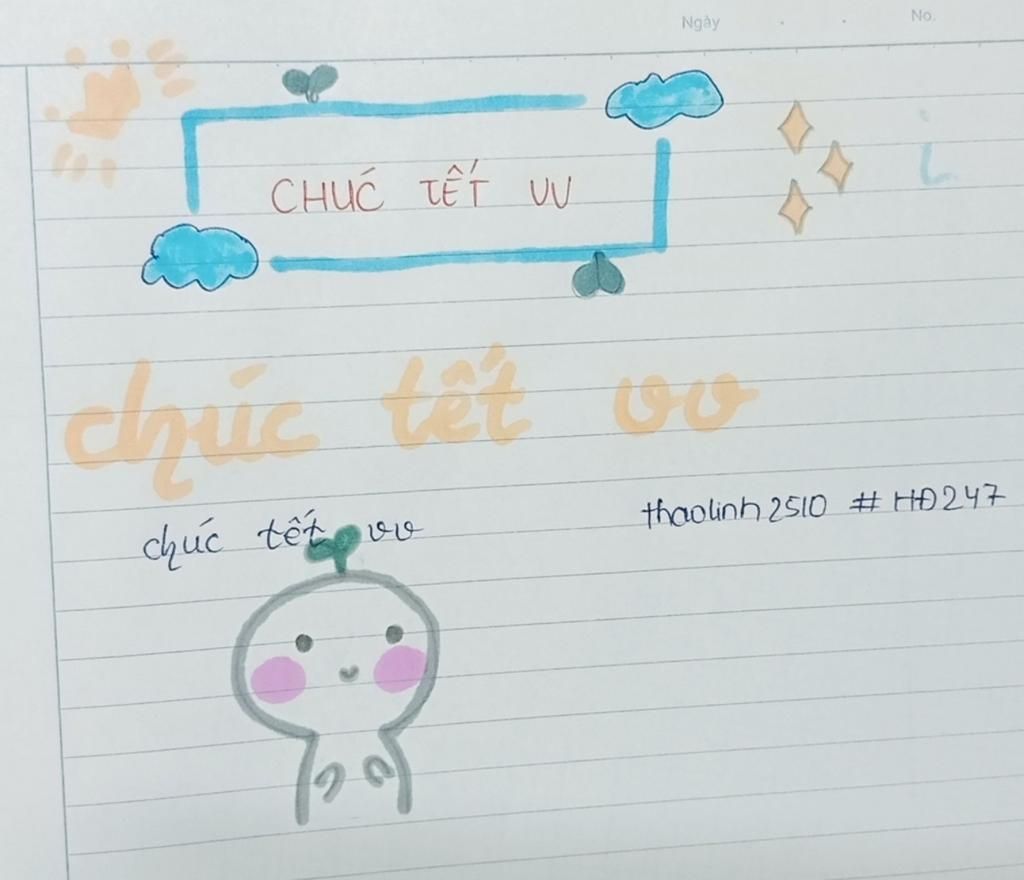 Ngày . . No.
CHÚC TẾT VV
chúc tết vv
chúc tết vv
thaolinh2510 # HĐ247